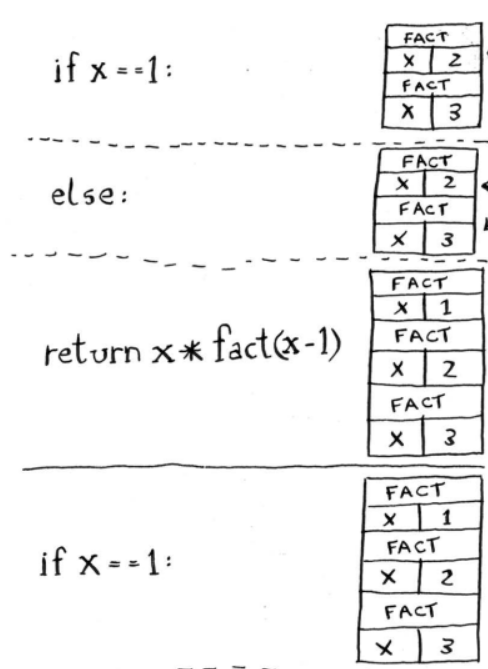 if x ==1:
FACT
X 2
FACT
X 3
else:
FACT
X 2
FACT
X 3
return x * fact(x-1)
FACT
X 1
FACT
X 2
FACT
X 3
if x ==1:
FACT
X 1
FACT
X 2
FACT
X 3